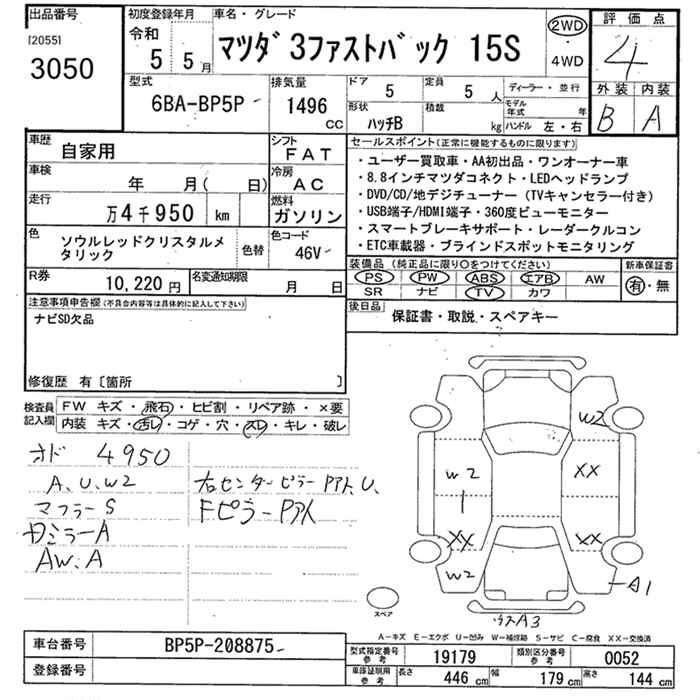 出品番号
[2055]
3050
初度登録年月
令和
5 5月
車名・グレード
マツダ 3ファストバック 15S
2WD
・
4WD
評価点
4
外装 内装
B A
型式
6BA-BP5P
排気量
1496
CC
ドア
5
定員
5 人
形状
ハッチB
積載
kg
ディーラー・並行
モデル年式 年
ハンドル 左・右
車歴
自家用
シフト
FAT
車検
年 月( 日)
冷房
AC
走行
万4千950 km
燃料
ガソリン
色
ソウルレッドクリスタルメ
タリック
色替
色コード
46V
R券
10,220円
名変通知期限
月 日
セールスポイント(正常に機能するものに限ります)
・ユーザー買取車・AA初出品・ワンオーナー車
・8.8インチマツダコネクト・LEDヘッドランプ
・DVD/CD/地デジチューナー(TVキャンセラー付き)
・USB端子/HDMI端子・360度ビューモニター
・スマートブレーキサポート・レーダークルコン
・ETC車載器・ブラインドスポットモニタリング
装備品(純正品に限り○をつけてください)
PS PW ABS エアB AW
SR ナビ TV カワ
新車保証書
有・無
後日品
保証書・取説・スペアキー
注意事項申告欄(不具合内容等は具体的に記入して下さい)
ナビSD欠品
修復歴 有〔箇所 〕
検査員
記入欄
FW キズ・飛石・ヒビ割・リペア跡・×要
内装 キズ・汚レ・コゲ・穴・スレ・キレ・破レ
オド 4950
A、U、W2
マフラーS
カミラーA
AW、A
右センターピラーPアト、U、
FピラーPアト
W2
W2
XX
XX
XX
W2
A1
スペア
A3
A-キズ E-エクボ U-凹み W-補修跡 S-サビ C-腐食 XX-交換済
車台番号
BP5P-208875
登録番号
型式指定番号
参考
19179
類別区分番号
参考
0052
車庫証明用
参考
長さ
446 cm
幅
179 cm
高さ
144 cm